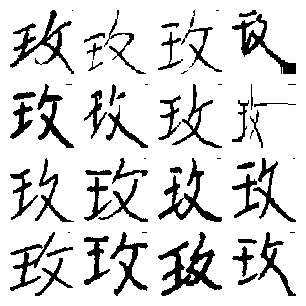 玫玫玫玫
玫玫玫玫
玫玫玫玫
玫玫玫玫